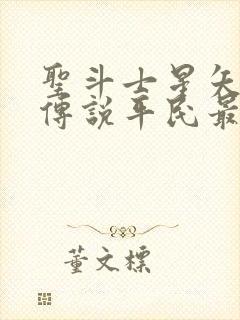 聖斗士星矢
傳說平民最
董文標